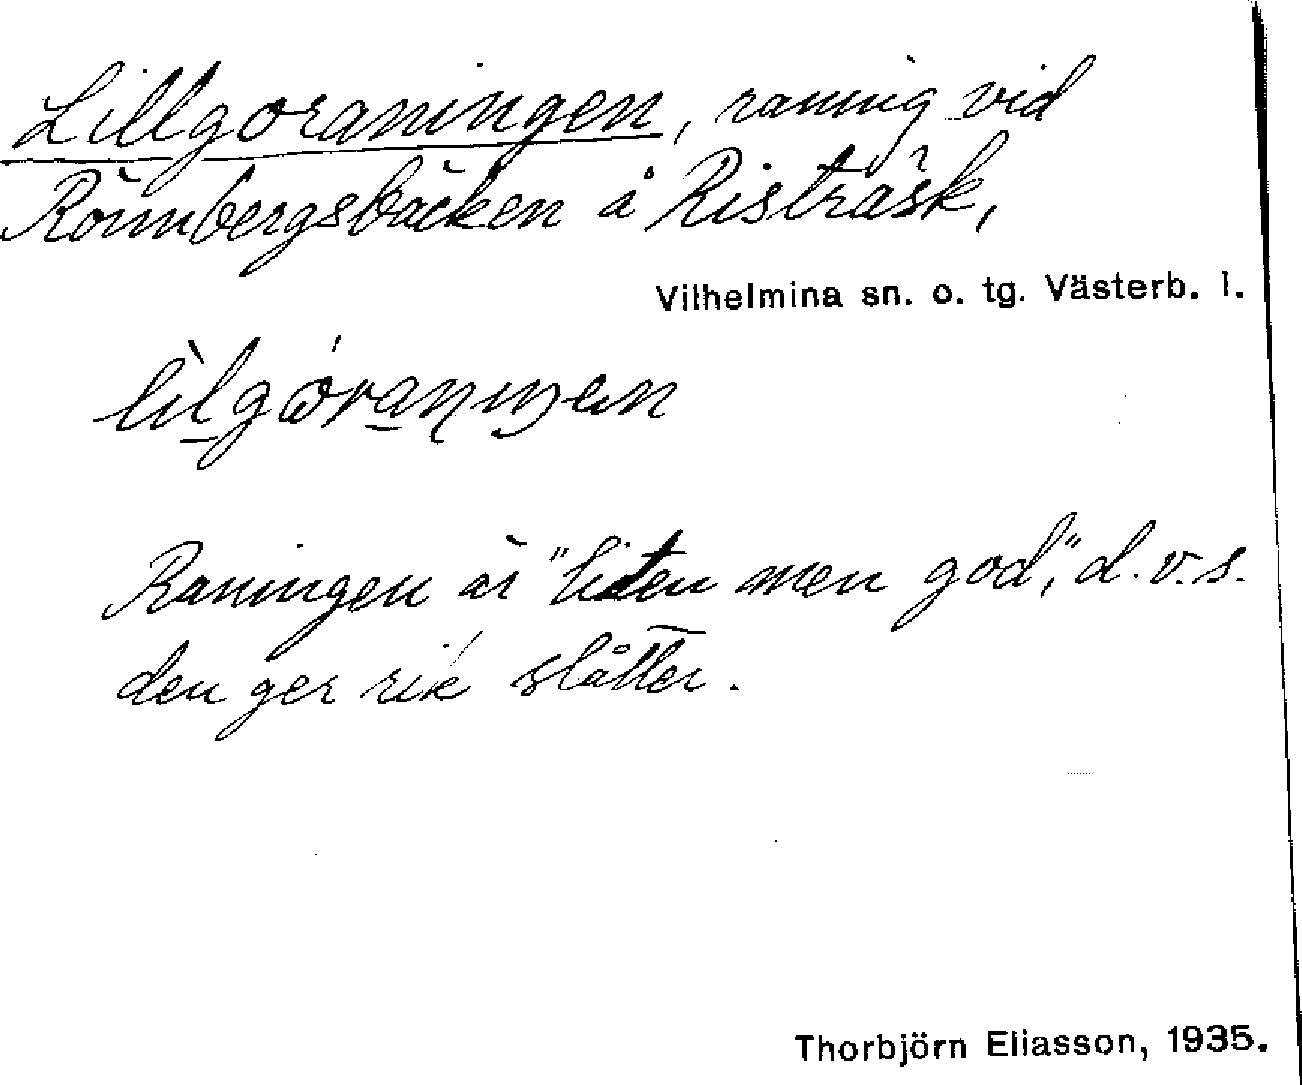 Lillgoraningen, raning vid
Rönnbergsbäcken å Risträsk,
Vilhelmina sn. o. tg. Västerb. l.
Raningen är "liten men god", d.v.s.
den ger rik slåtter.
Thorbjörn Eliasson, 1935.